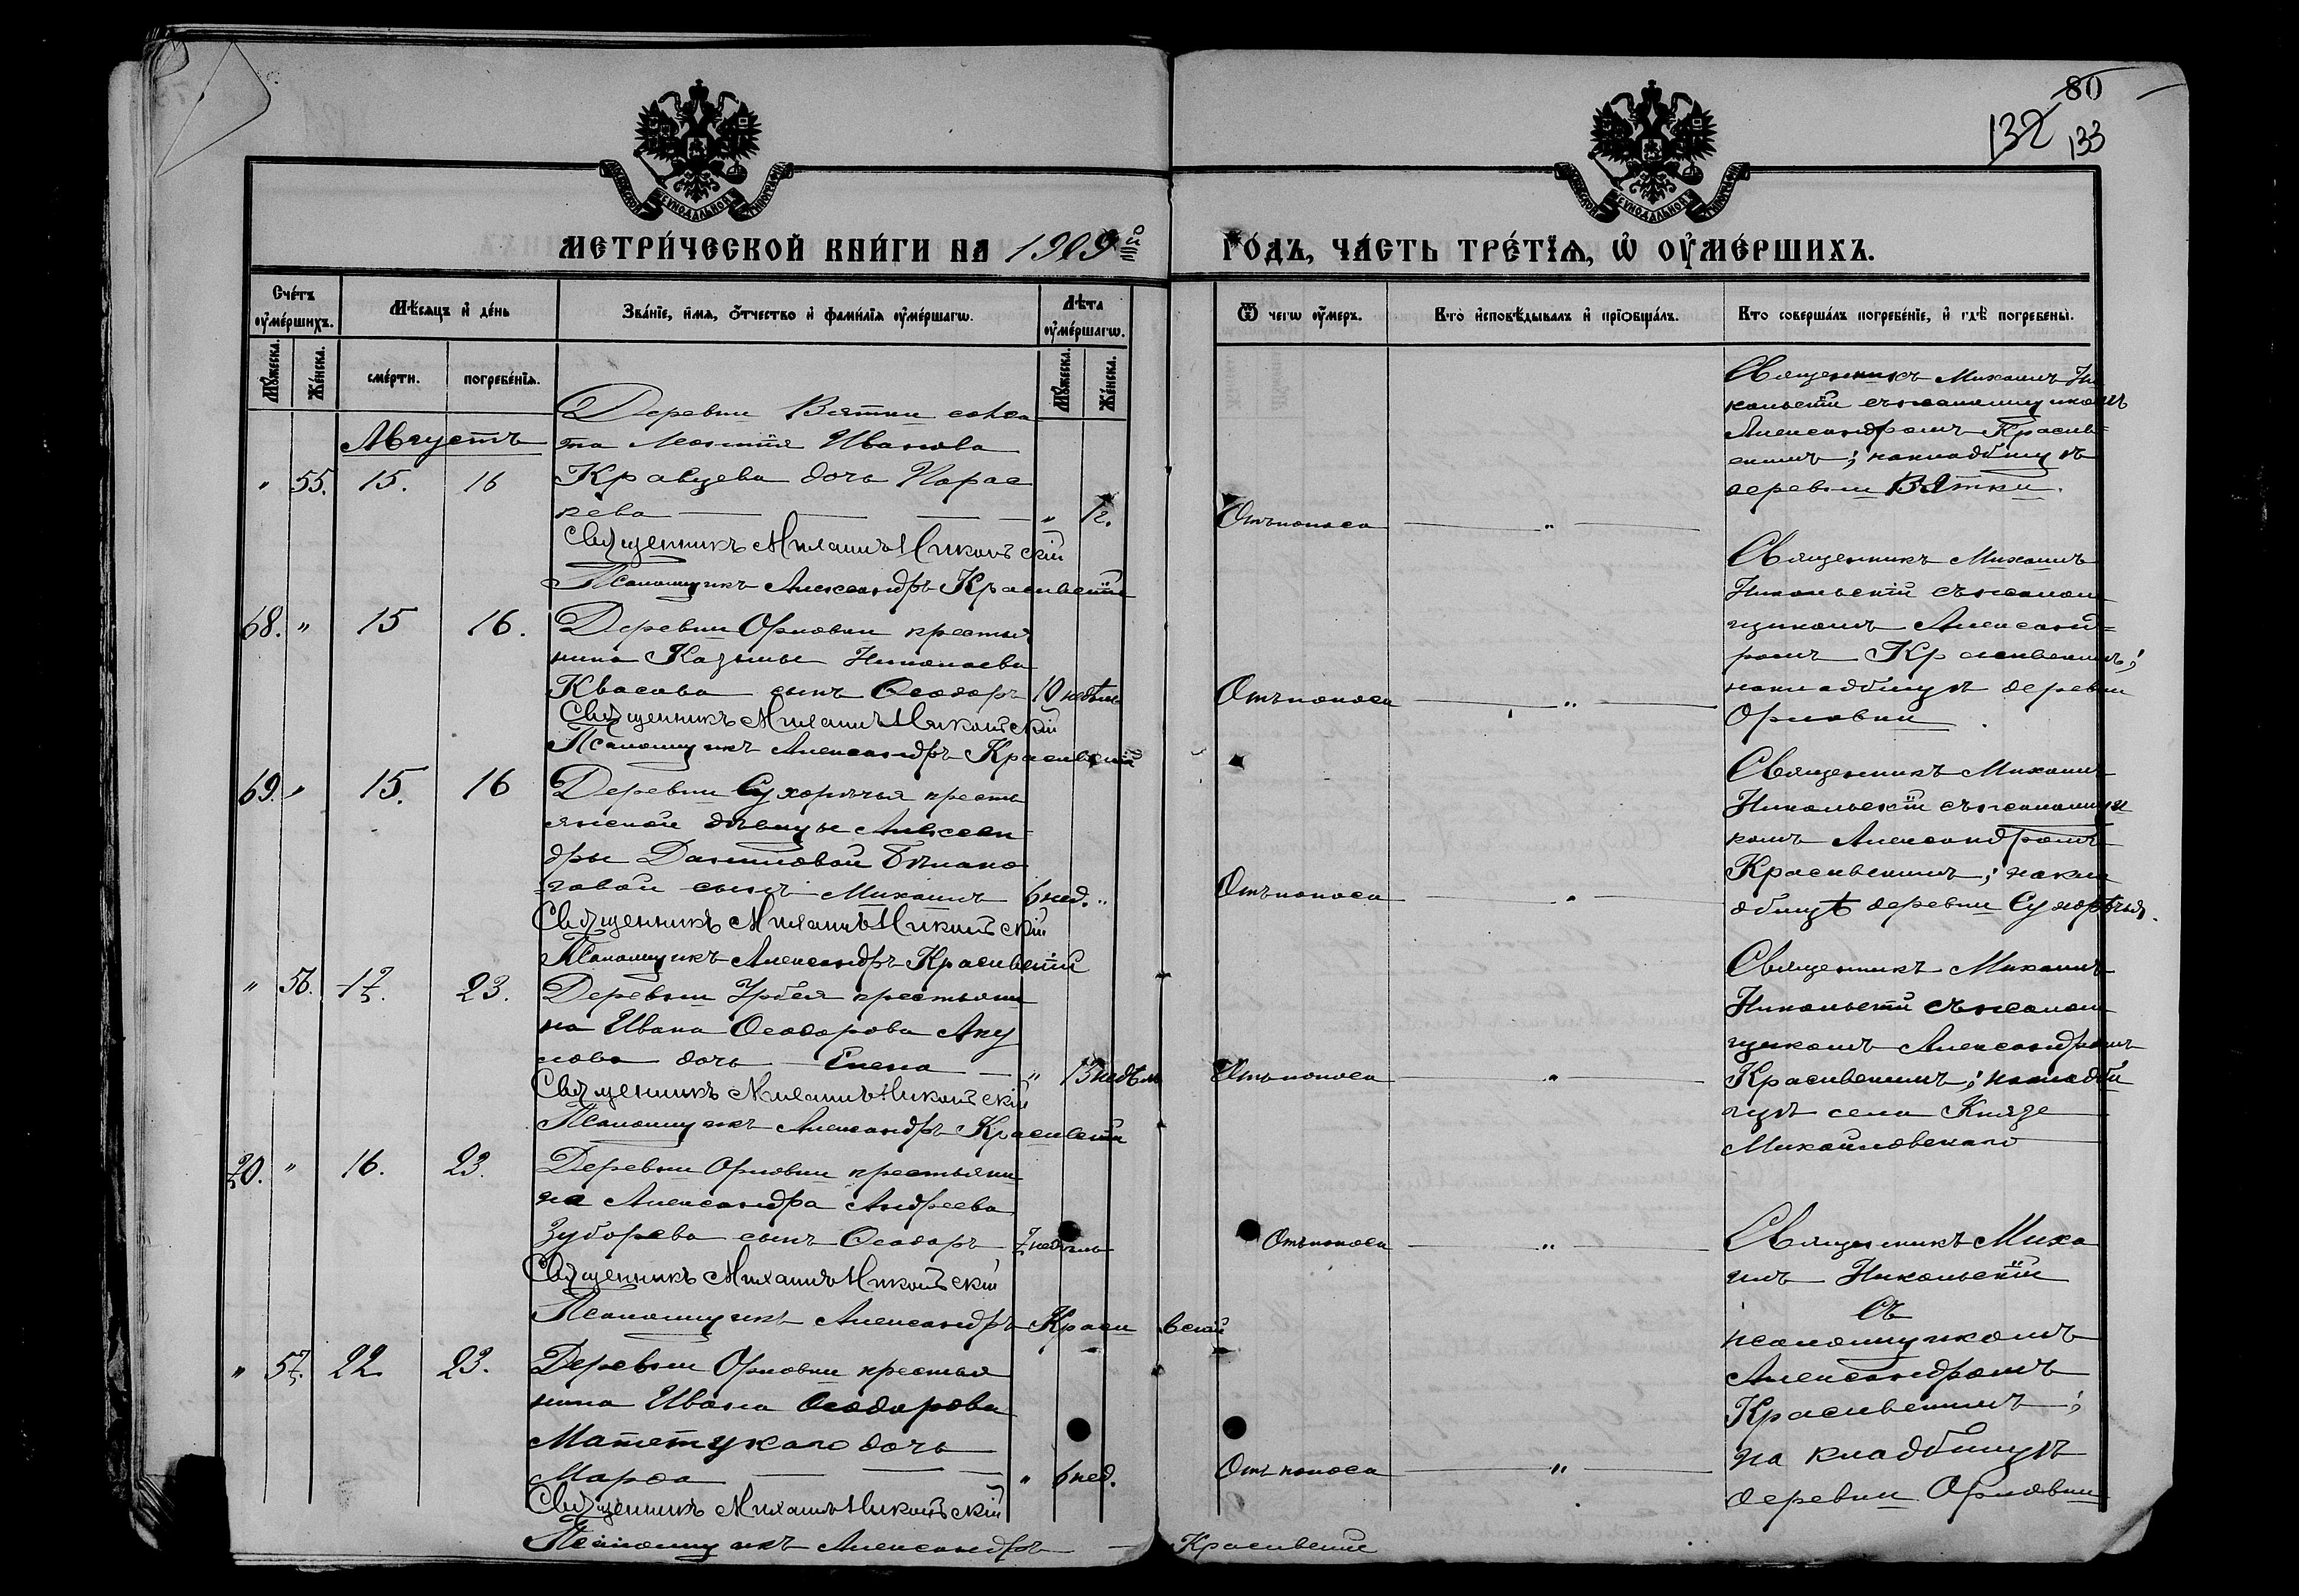 80
132 133
МЕТРИ́ЧЕСКОЙ КНИ́ГИ НА 1909й
ГО́ДЪ, ЧА́СТЬ ТРЕ́ТЇѦ, Ѡ҆ ОУ҆МЕ́РШИХЪ.
Сче́тъ оу҆ме́ршихъ.
Мꙋ́жеска.
Же́нска.
Мѣ́сѧцъ и҆ де́нь
сме́рти.
погребе́нїѧ.
Зва́нїе, и҆мѧ, ѻ҆́тчество и҆ фами́лїѧ оу҆ме́ршагѡ.
Лѣ́та оу҆ме́ршагѡ.
Мꙋ́жеска.
Же́нска.
Ѿ чегѡ̀ оу҆́меръ.
Кто̀ и҆сповѣ́дывалъ и҆ прїѻбща́лъ.
Кто̀ соверша́лъ погребе́нїе, и҆ гдѣ̀ погребены̀.
Августъ
" 55. 15. 16
Деревни Вятки солда
та Леонтія Иванова
Кравцева дочь Парас
кева " 1 г.
Священникъ Михаилъ Никольскій
Псаломщикъ Александръ Красивскій
Отъ поноса "
Священникъ Михаилъ Ни
кольскій съ псаломщикомъ
Александромъ Красив=
скимъ; на кладбищѣ
деревни Вятки.
68. " 15 16.
Деревни Орловки крестья
нина Казьмы Николаева
Квасова сынъ Ѳеодоръ 10 недѣль
Священникъ Михаилъ Никольскій
Псаломщикъ Александръ Красивскій
Отъ поноса "
Священникъ Михаилъ
Никольскій съ псалом
щикомъ Александ=
ромъ Красивскимъ;
на кладбищѣ деревни
Орловки
69. " 15. 16
Деревни Сухорѣчья кресть
янской дѣвицы Алексан=
дры Даниловой Бѣлоно
говой сынъ Михаилъ 6 нед. "
Священникъ Михаилъ Никольскій
Псаломщикъ Александръ Красивскій
Отъ поноса "
Священникъ Михаилъ
Никольскій съ псаломщи
комъ Александромъ
Красивскимъ; на кла
дбищѣ деревни Сухорѣчья.
" 56. 17. 23.
Деревни Урбея крестьяни
на Ивана Ѳеодорова Аку
лова дочь Елена " 13 недѣль
Священникъ Михаилъ Никольскій
Псаломщикъ Александръ Красивскій
Отъ поноса "
Священникъ Михаилъ
Никольскій съ псалом
щикомъ Александромъ
Красивскимъ; на кладби
щѣ села Князе
Михайловскаго
70. " 16. 23.
Деревни Орловки крестьяни
на Александра Андреева
Зуборева сынъ Ѳеодоръ 7 недѣль
Священникъ Михаилъ Никольскій
Псаломщикъ Александръ Красивскій
Отъ поноса "
Священникъ Миха
илъ Никольскій
съ
псаломщикомъ
Александромъ
Красивскимъ;
на кладбищѣ
деревни Орловки
" 57. 22 23.
Деревни Орловки крестья
нина Ивана Ѳеодорова
дочь
Марѳа " 6 нед.
Священникъ Михаилъ Никольскій
Псаломщикъ Александръ Красивскій
Отъ поноса "